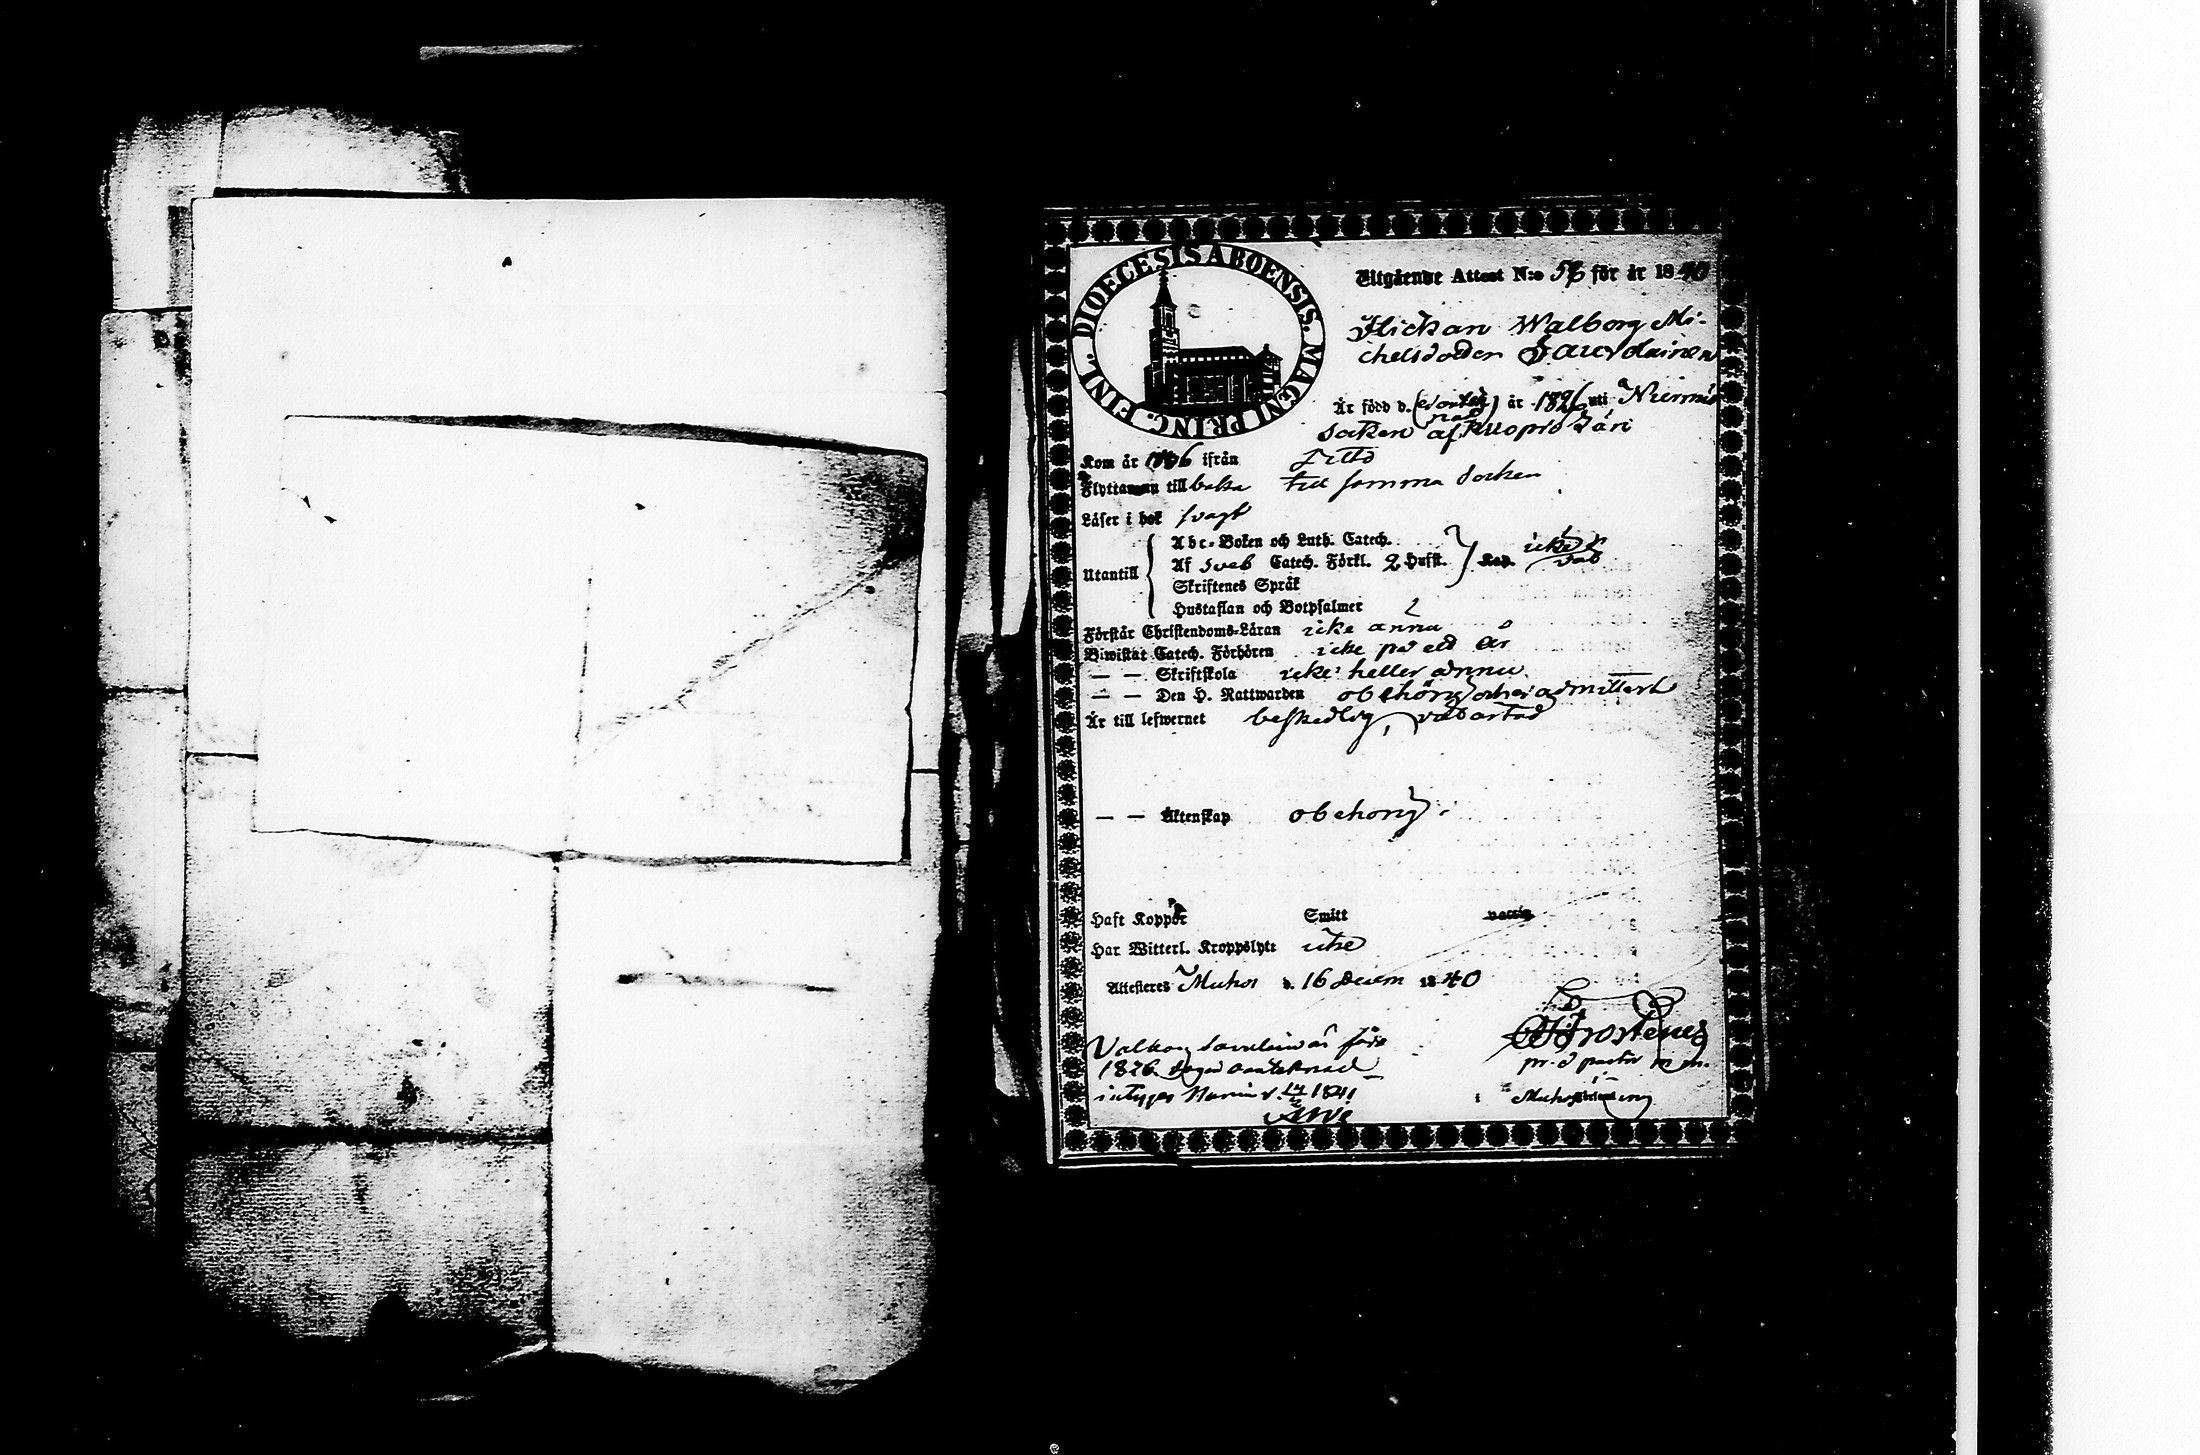 DIOECESIS ABOENSIS. MAGNI PRINC. FINL.
Utgående Attest N:o 56 för år 1840
Flickan Walborg Mi-
chelsdotter Sauvolainen
Är född d. år 1826 uti Nurmis
Socken af Kuopio Län
Kom år 1836 ifrån Ditto
Flyttar nu tillbaka till samma Socken
Läser i bok svagt
Utantill
Abc-Boken och Luth. Catech.
Af Sveb Catech. Förkl. 2 Hufst. icke
Skriftenes Språk
Hustaflan och Botpsalmer
Förstår Christendoms-Läran icke ännu
Biwistat Catech. Förhören icke på ett år
— — Skriftskola icke heller ännu
— — Den H. Nattwarden obehörig och ej admitterad
Är till lefwernet beskedlig, välartad
— — Äktenskap obehörig
Haft Koppor Smitt vaccin
Har Witterl. Kroppslyte icke
Attesteras Muhos d. 16 Decem 1840
Frostenus
Valborg född
1826
intygar Nurmis d. 14/2 1841
Muhos